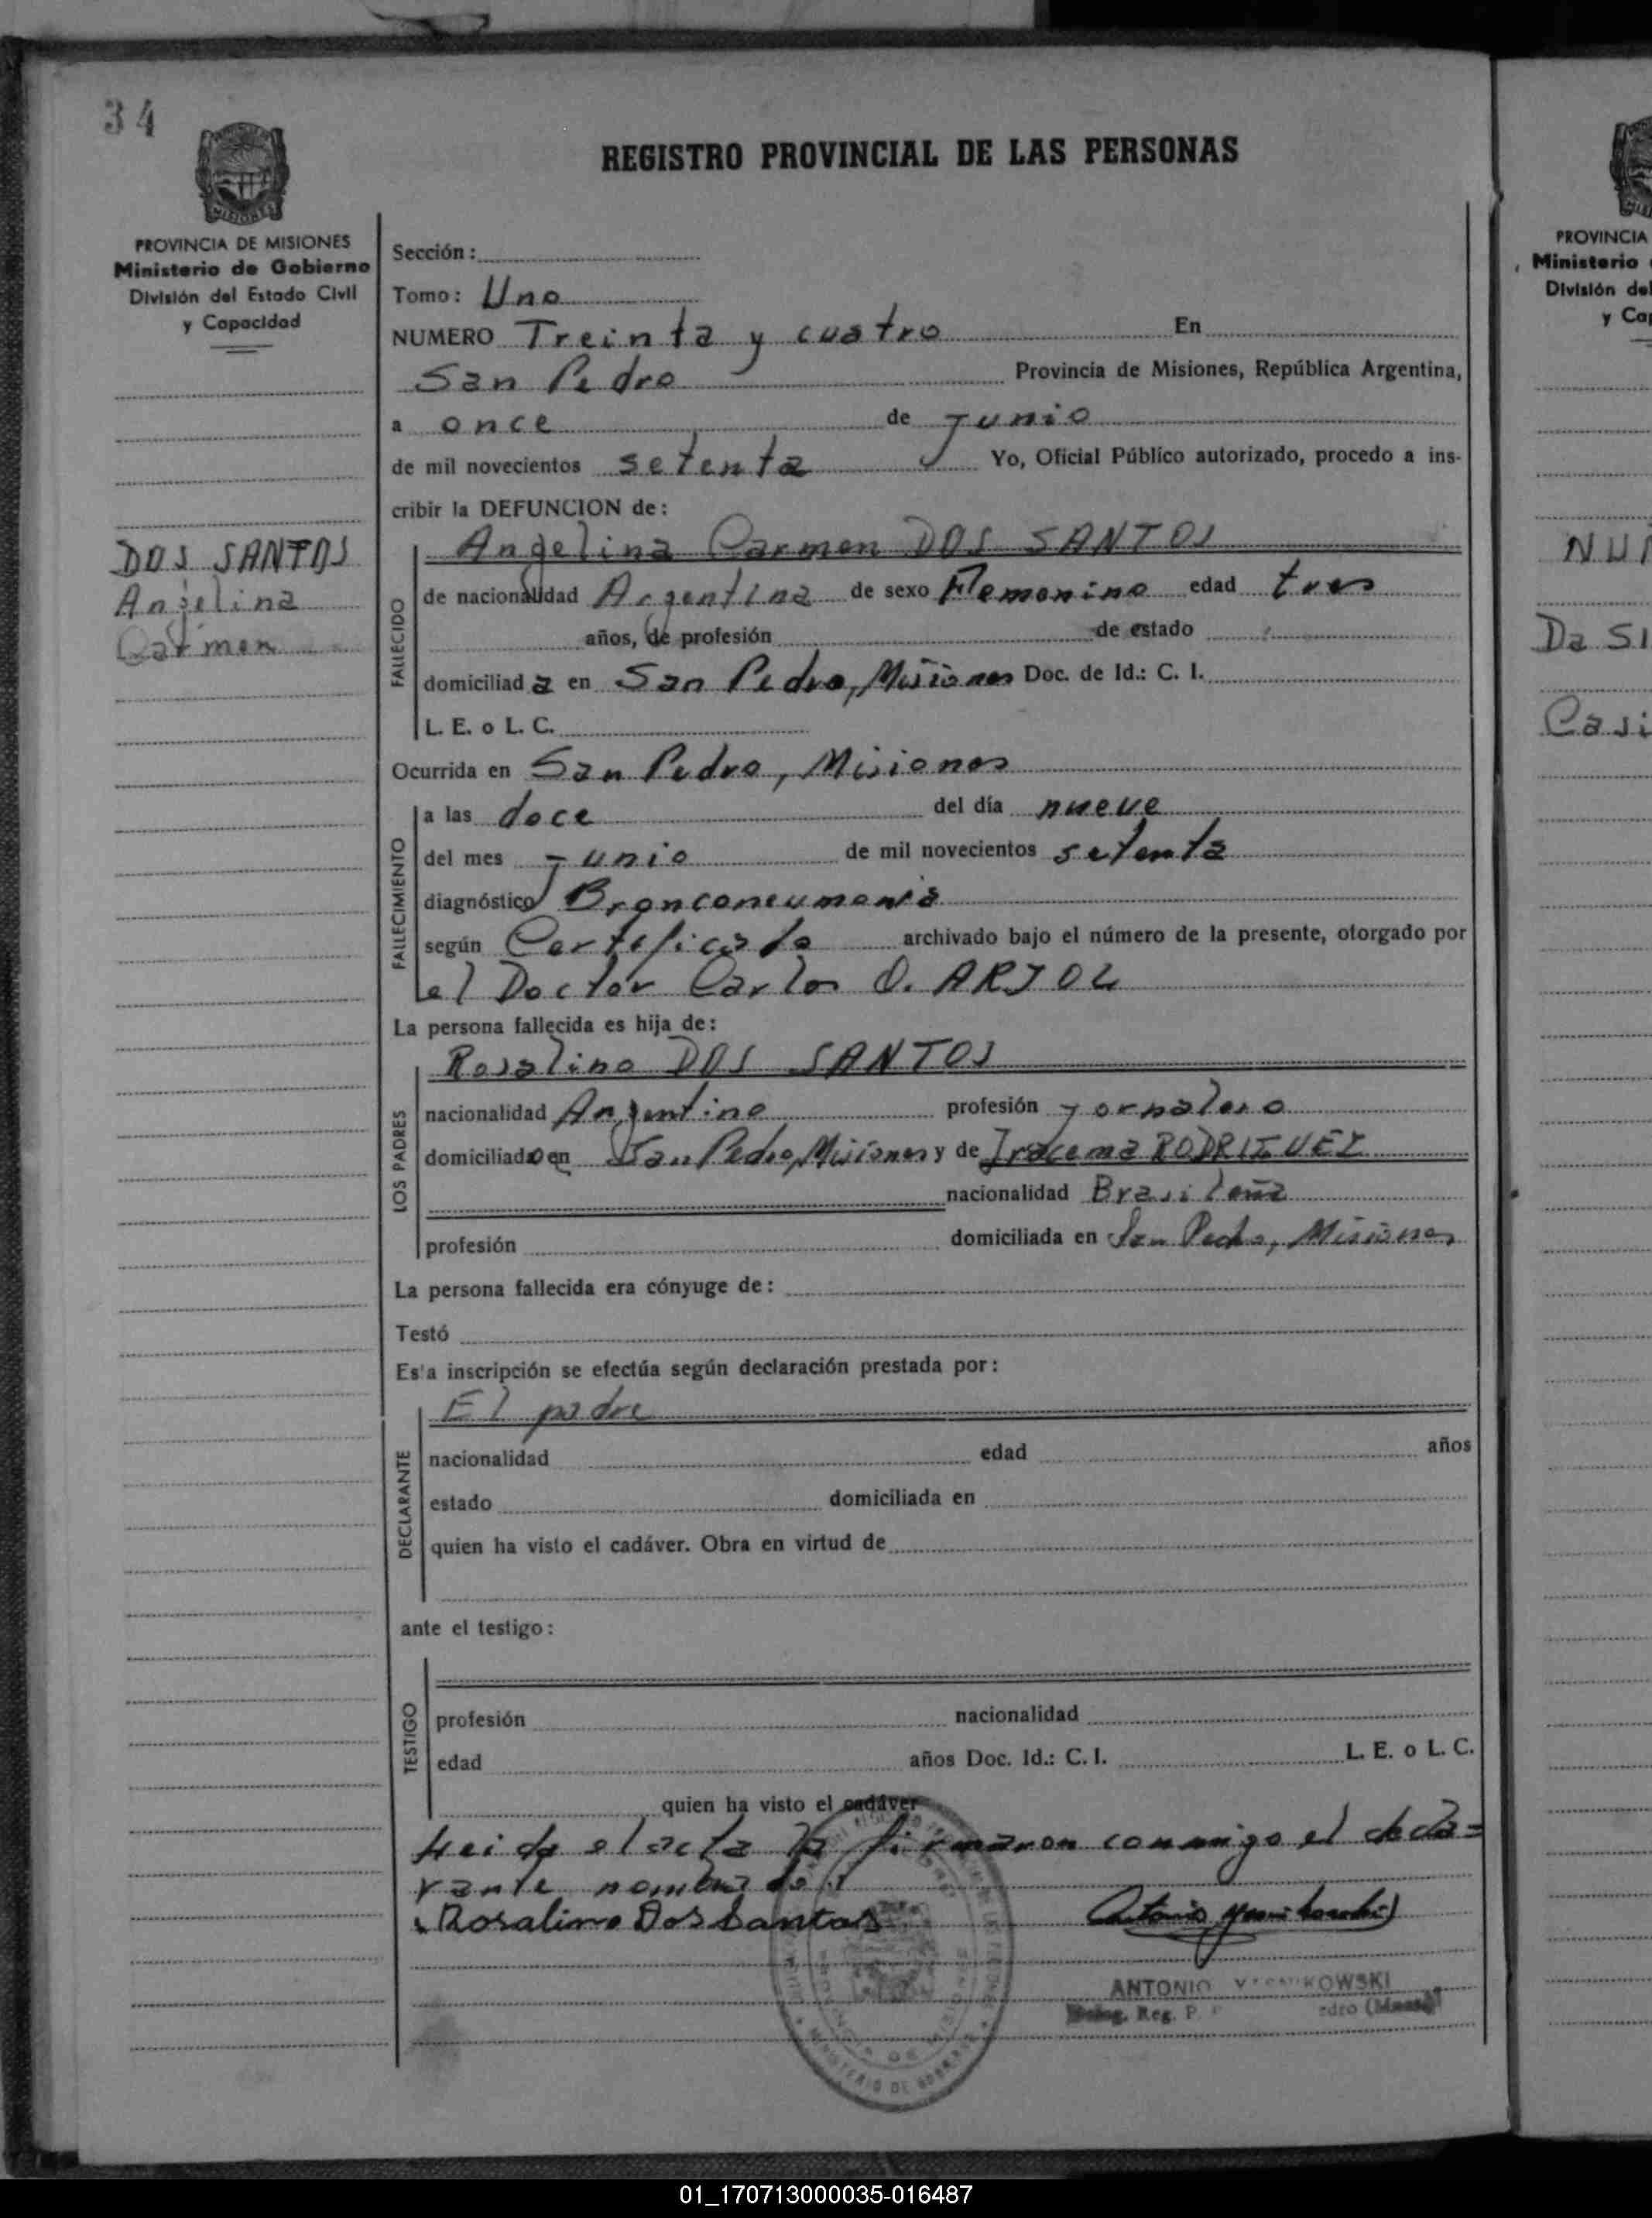 34
REGISTRO PROVINCIAL DE LAS PERSONAS
MISIONES
PROVINCIA DE MISIONES
Ministerio de Gobierno
División del Estado Civil
y Capacidad
DOS SANTOS
Angelina
Carmen
Sección:
Tomo: Uno
NUMERO Treinta y cuatro En
San Pedro Provincia de Misiones, República Argentina,
a once de junio
de mil novecientos setenta Yo, Oficial Público autorizado, procedo a ins-
cribir la DEFUNCION de:
Angelina Carmen DOS SANTOS
FALLECIDO
de nacionalidad Argentina de sexo Femenino edad tres
años, de profesión de estado
domiciliad a en San Pedro, Misiones Doc. de Id.: C. I.
L. E. o L. C.
Ocurrida en San Pedro, Misiones
FALLECIMIENTO
a las doce del día nueve
del mes junio de mil novecientos setenta
diagnóstico Bronconeumonía
según Certificado archivado bajo el número de la presente, otorgado por
el Doctor Carlos O. ARJOL
La persona fallecida es hija de:
Rosalino DOS SANTOS
LOS PADRES
nacionalidad Argentino profesión jornalero
domiciliado en San Pedro, Misiones y de Iracema RODRIGUEZ
nacionalidad Brasileña
profesión domiciliada en San Pedro, Misiones
La persona fallecida era cónyuge de:
Testó
Es'a inscripción se efectúa según declaración prestada por:
El padre
DECLARANTE
nacionalidad edad años
estado domiciliada en
quien ha visto el cadáver. Obra en virtud de
ante el testigo:
TESTIGO
profesión nacionalidad
edad años Doc. Id.: C. I. L. E. o L. C.
quien ha visto el cadáver
Leida el acta la firmaron conmigo el decla=
rante nombrado
Rosalino Dos Santos
ANTONIO KOWSKI
Reg. P.
MINISTERIO DE GOBIERNO
PROVINCIA
Ministerio
División del
y Cap
Da SI
Casi
01_170713000035-016487